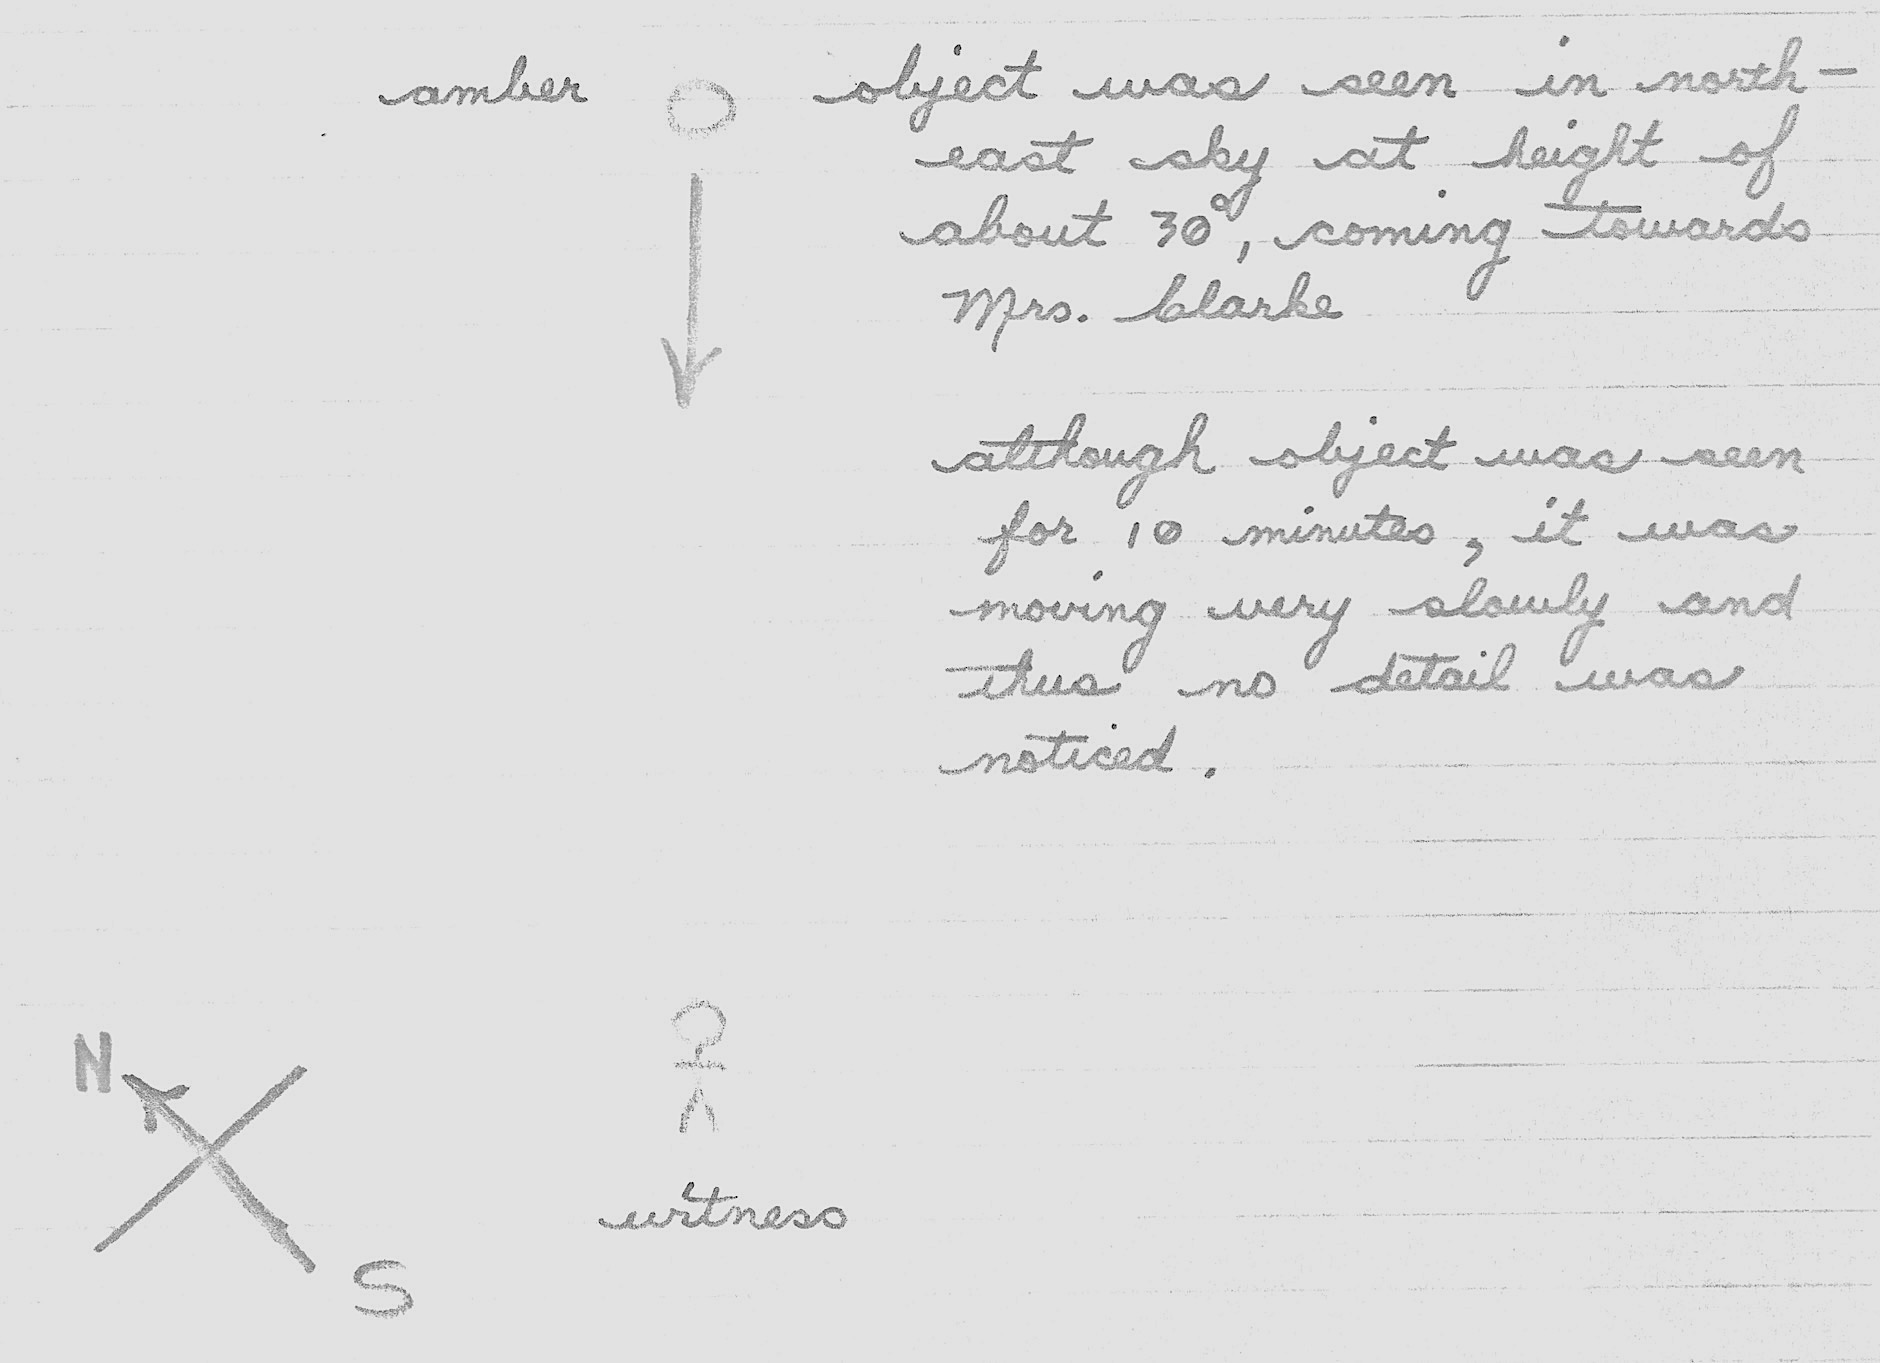 amber
object was seen in north-
east sky at height of
about 30°, coming towards
Mrs. Clarke
although object was seen
for 10 minutes, it was
moving very slowly and
thus no detail was
noticed.
N
S
witness